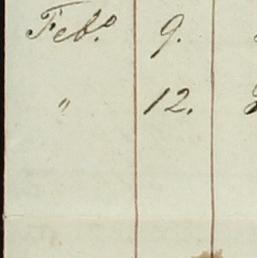 Feb.º 9.
" 12.